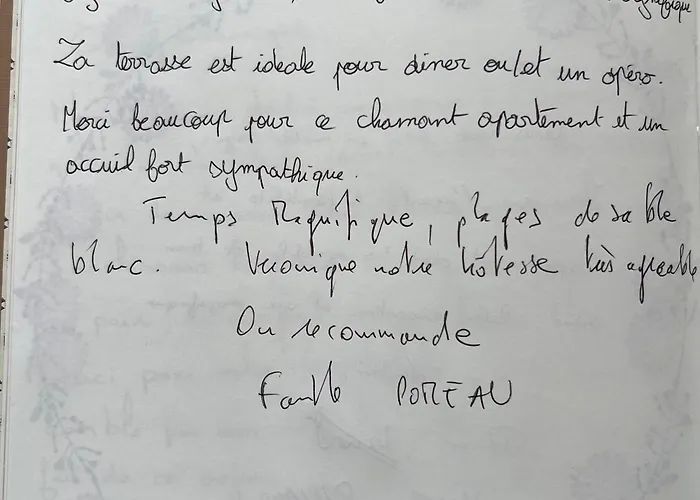 La terrasse est idéale pour diner ou/et un apéro.
Merci beaucoup pour ce charmant apartement et un
accueil fort sympathique.
Temps Magnifique, plages de sable
blanc. Véronique notre hôtesse très agréable
On recommande
Famille